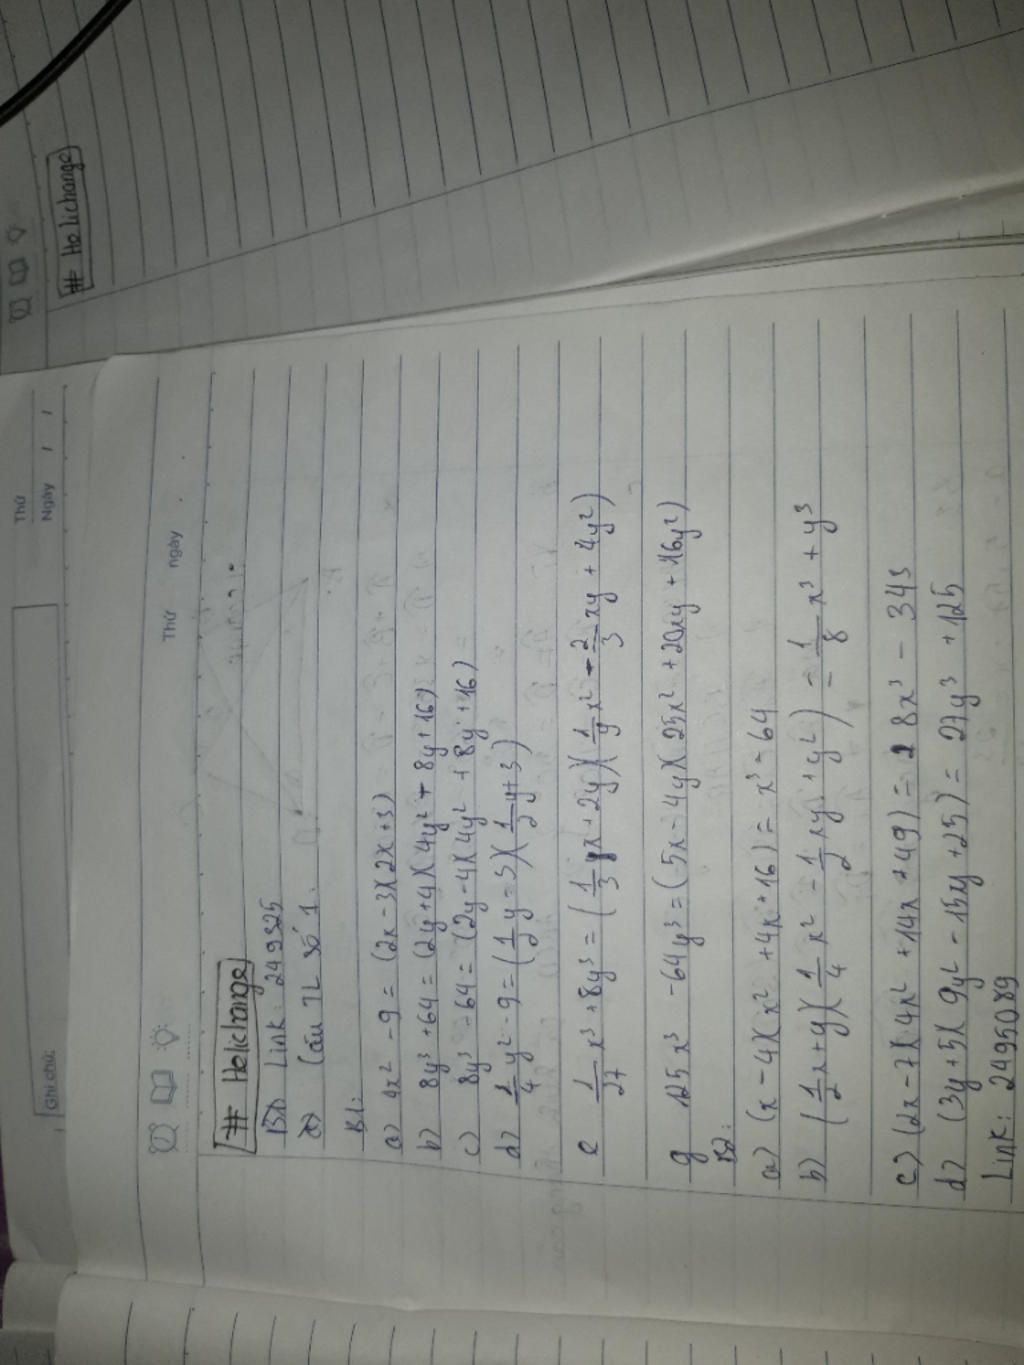 # Holichange
Thứ
Ngày / /
Ghi chú:
Thứ ngày
# Holichange
Link: 249325
Câu TL số 1.
B1:
a) 4x² - 9 = (2x - 3)(2x + 3)
b) 8y³ + 64 = (2y + 4)(4y² + 8y + 16)
c) 8y³ - 64 = (2y - 4)(4y² + 8y + 16)
d) 1/4 y² - 9 = (1/2 y - 3)(1/2 y + 3)
e 1/27 x³ + 8y³ = (1/3 x + 2y)(1/9 x² - 2/3 xy + 4y²)
g 125x³ - 64y³ = (5x - 4y)(25x² + 20xy + 16y²)
B2:
a) (x - 4)(x² + 4x + 16) = x³ - 64
b) (1/2 x + y)(1/4 x² - 1/2 xy + y²) = 1/8 x³ + y³
c) (2x - 7)(4x² + 14x + 49) = 8x³ - 343
d) (3y + 5)(9y² - 15y + 25) = 27y³ + 125
Link: 2495089